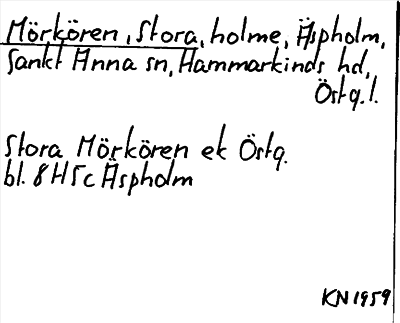 Mörkören, Stora, holme, Äspholm,
Sankt Anna sn, Hammarkinds hd,
Östg.l.
Stora Mörkören ek Östg.
bl. 8H5c Äspholm
KN 1959